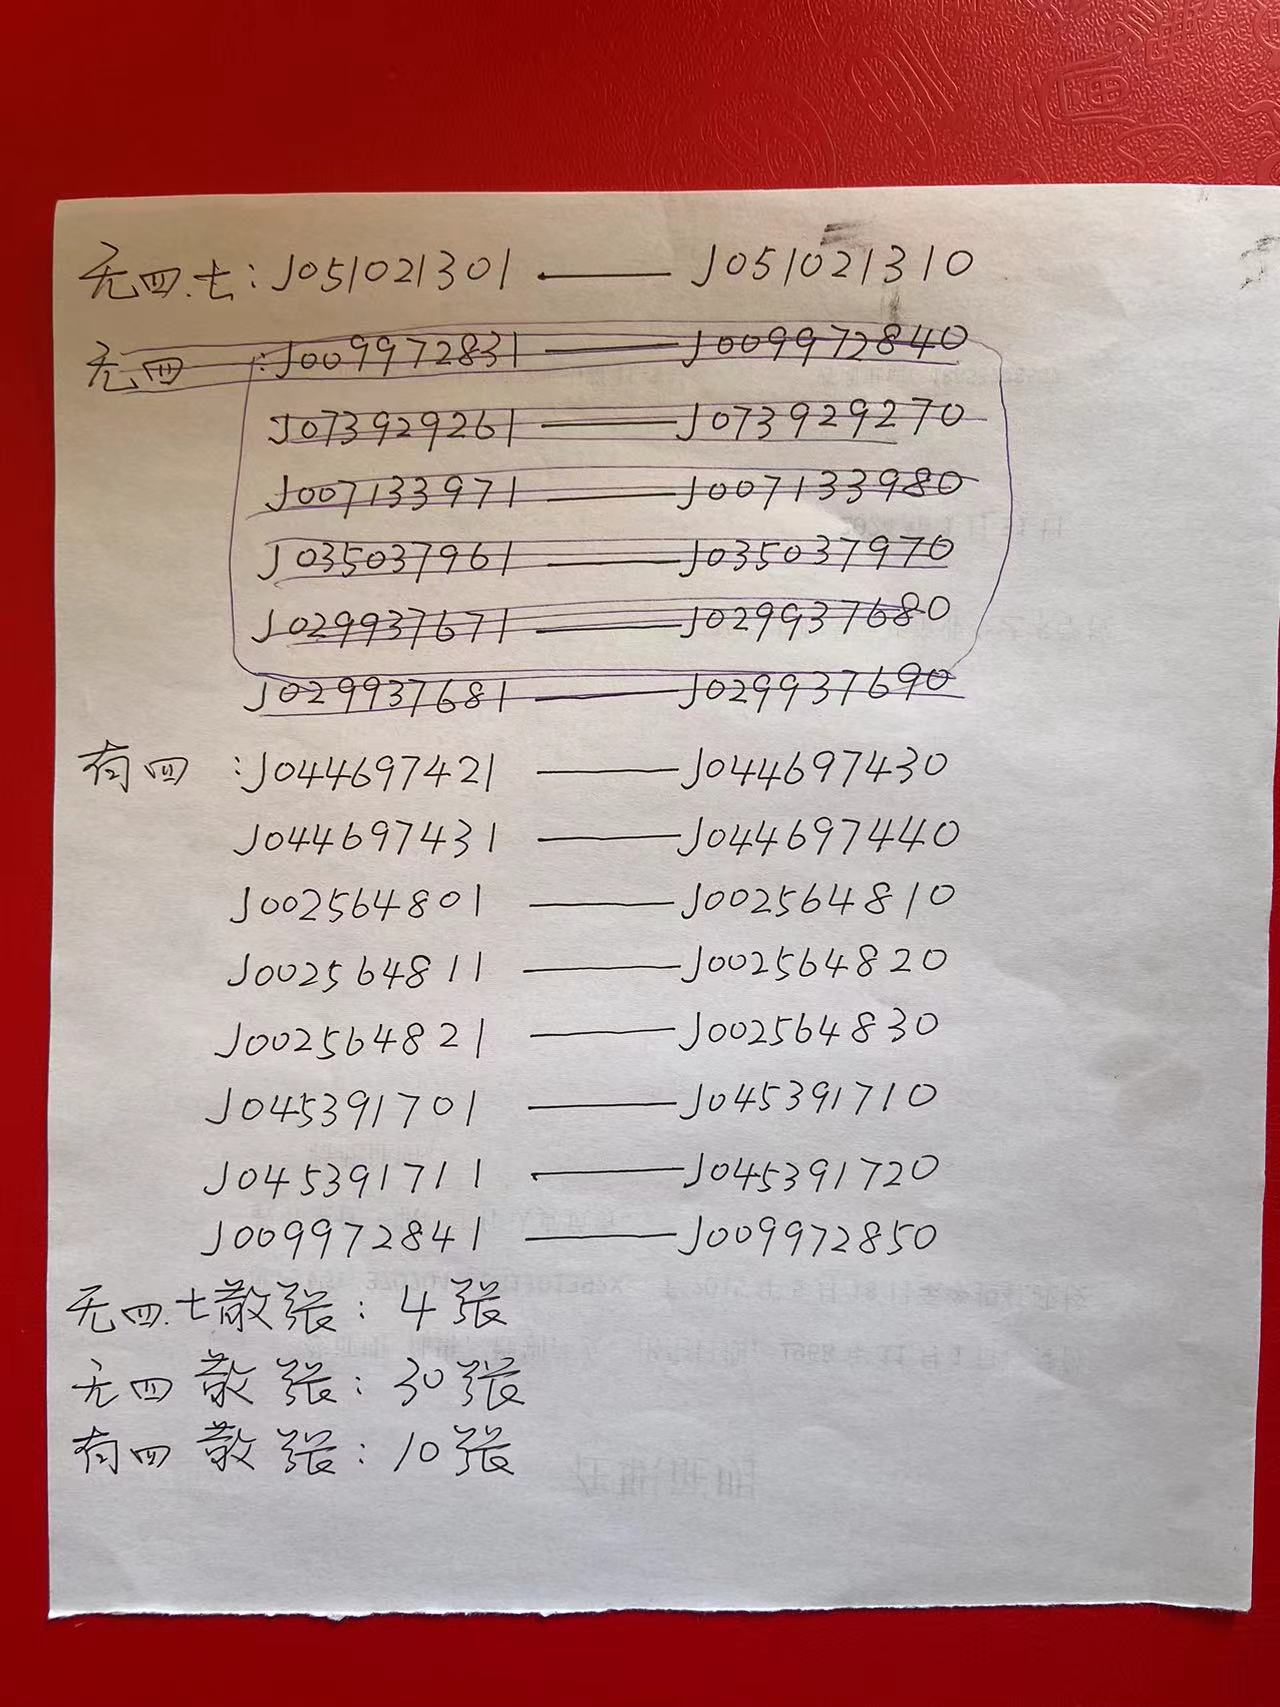 无四.七:J051021301——J051021310
无四:J009972831——J009972840
J073929261——J073929270
J007133971——J007133980
J035037961——J035037970
J029937671——J029937680
J029937681——J029937690
有四:J044697421——J044697430
J044697431——J044697440
J002564801——J002564810
J002564811——J002564820
J002564821——J002564830
J045391701——J045391710
J045391711——J045391720
J009972841——J009972850
无四.七散张:4张
无四散张:30张
有四散张:10张